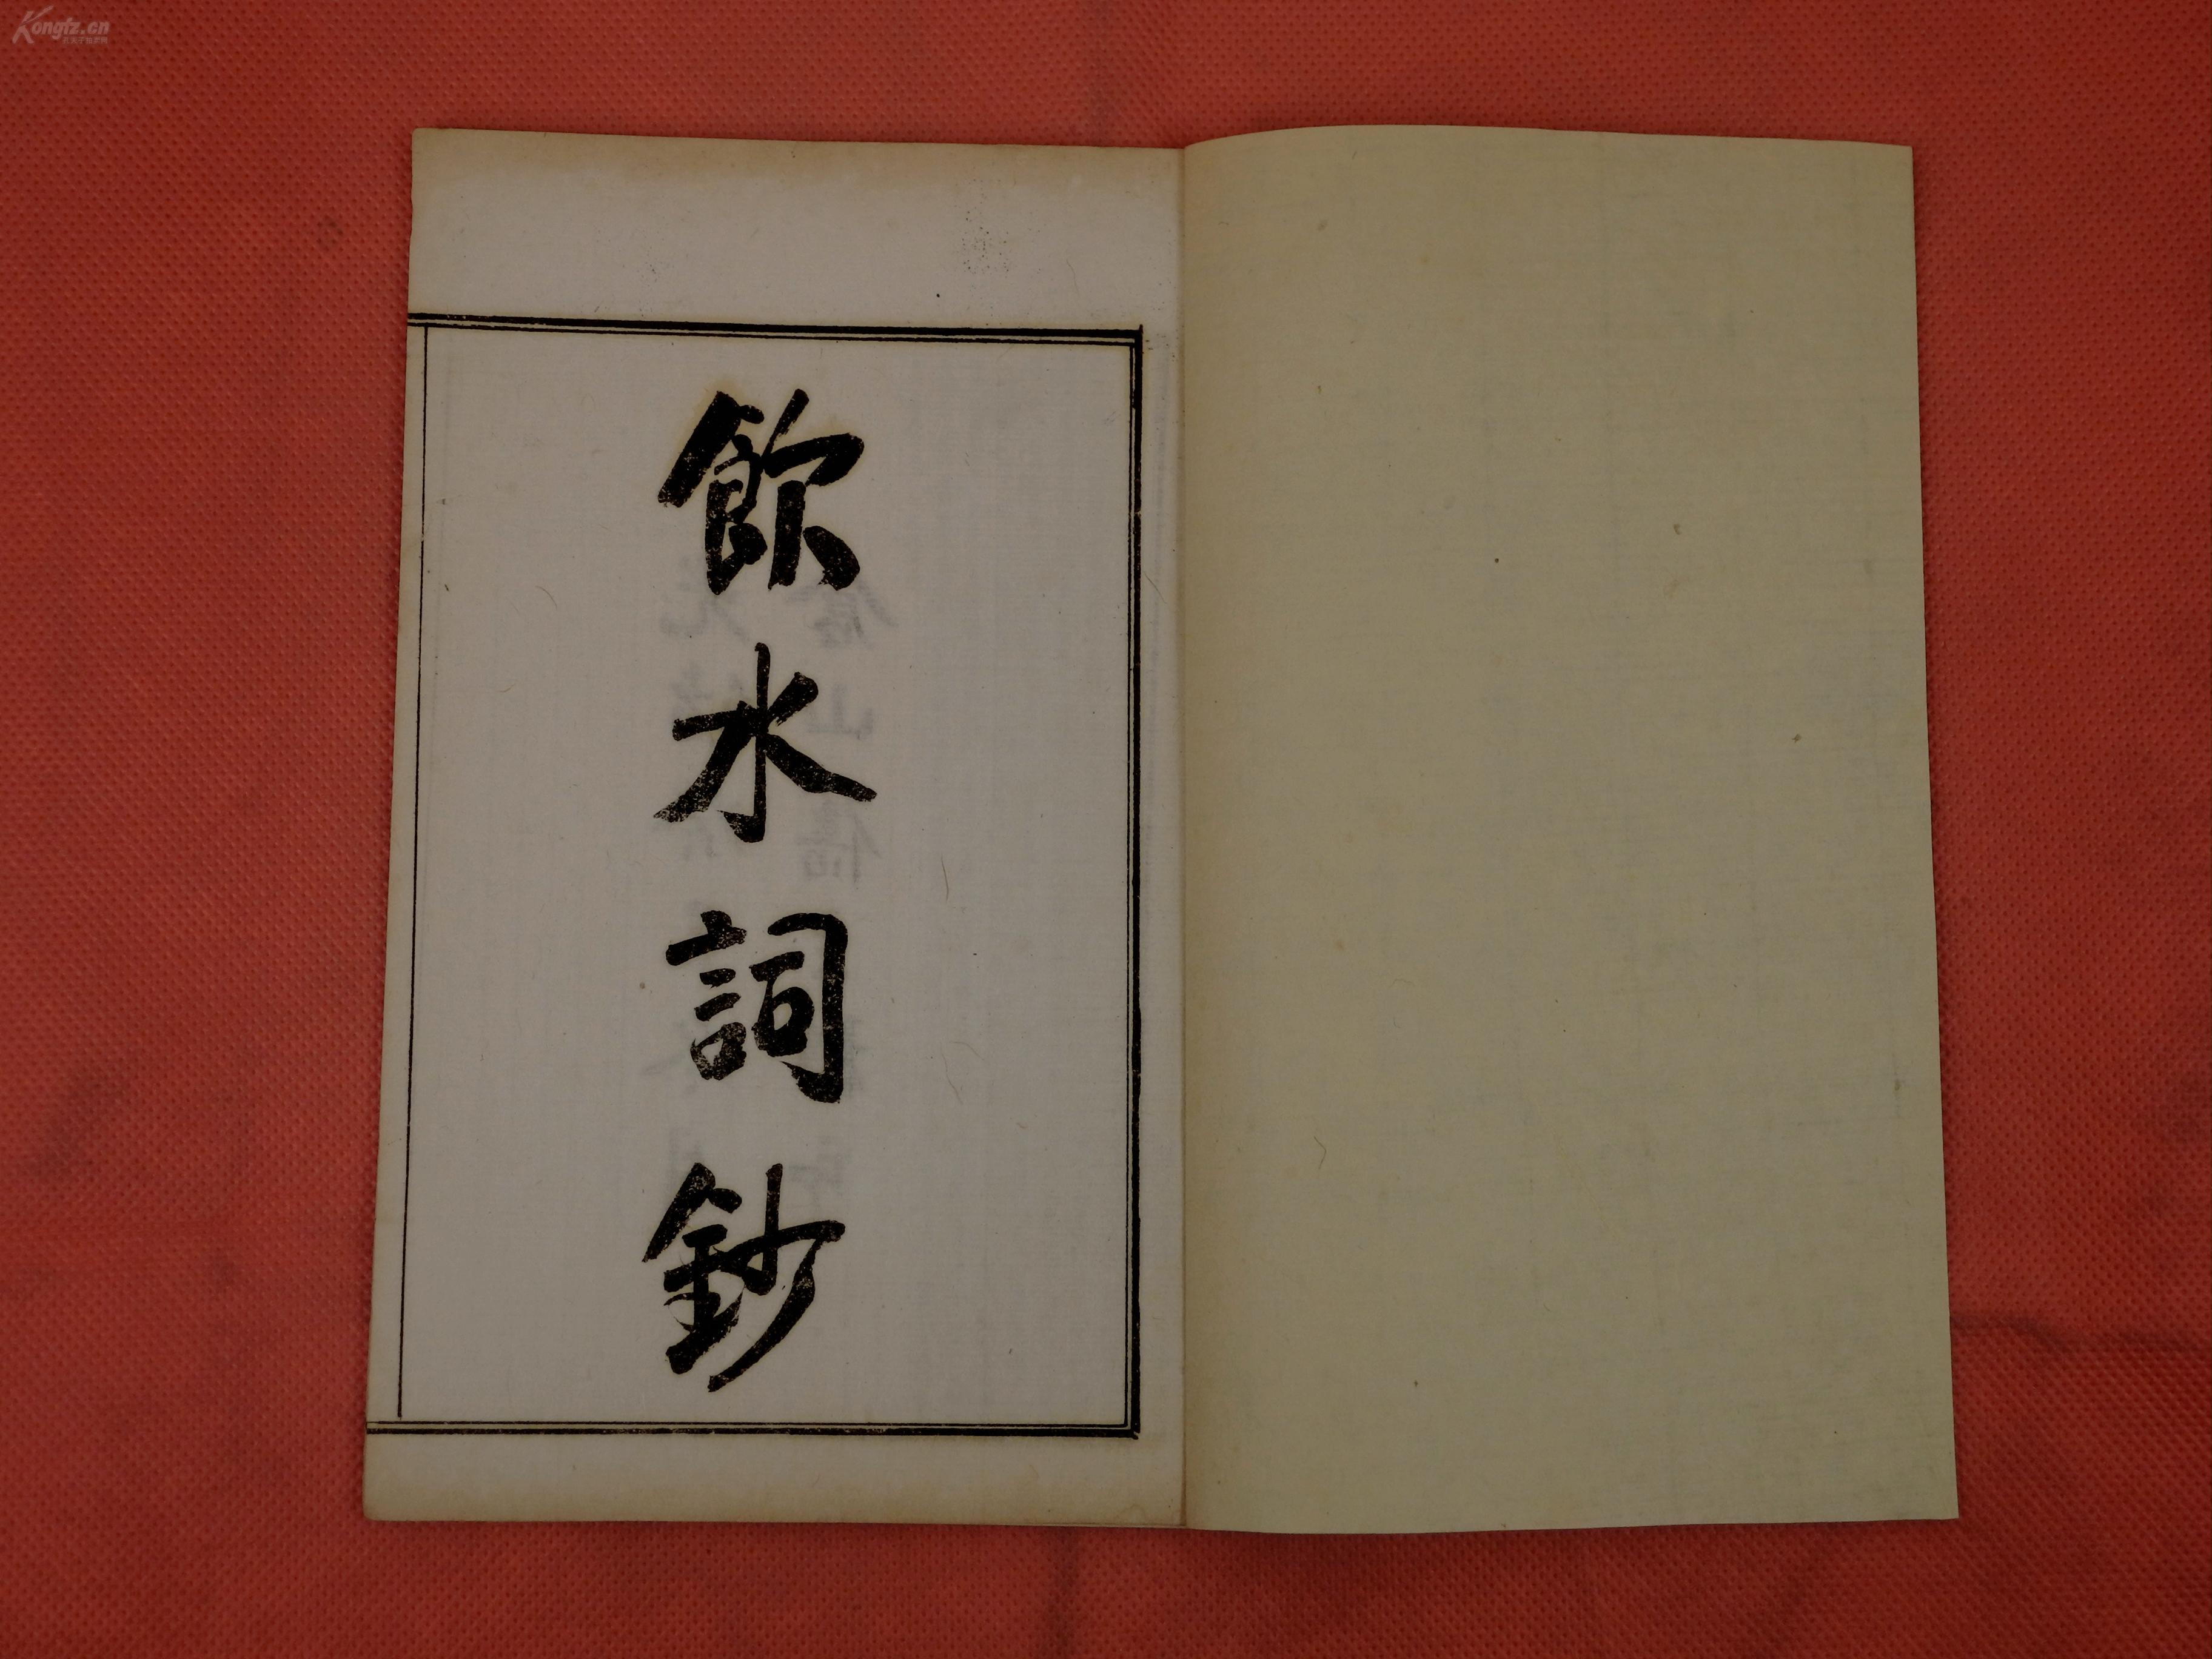 Kongfz.cn
飲水詞鈔